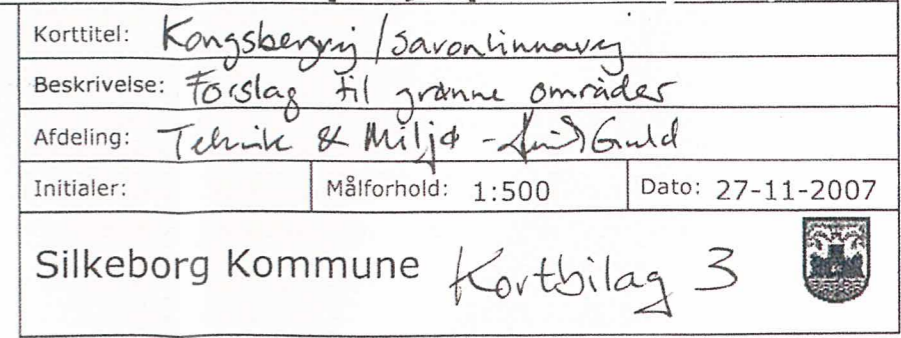 Korttitel: Kongsbergvej / Savonlinnavej
Beskrivelse: Forslag til grønne områder
Afdeling: Teknik & Miljø - Guld
Initialer: Målforhold: 1:500 Dato: 27-11-2007
Silkeborg Kommune Kortbilag 3